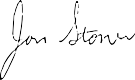 Jon Stone